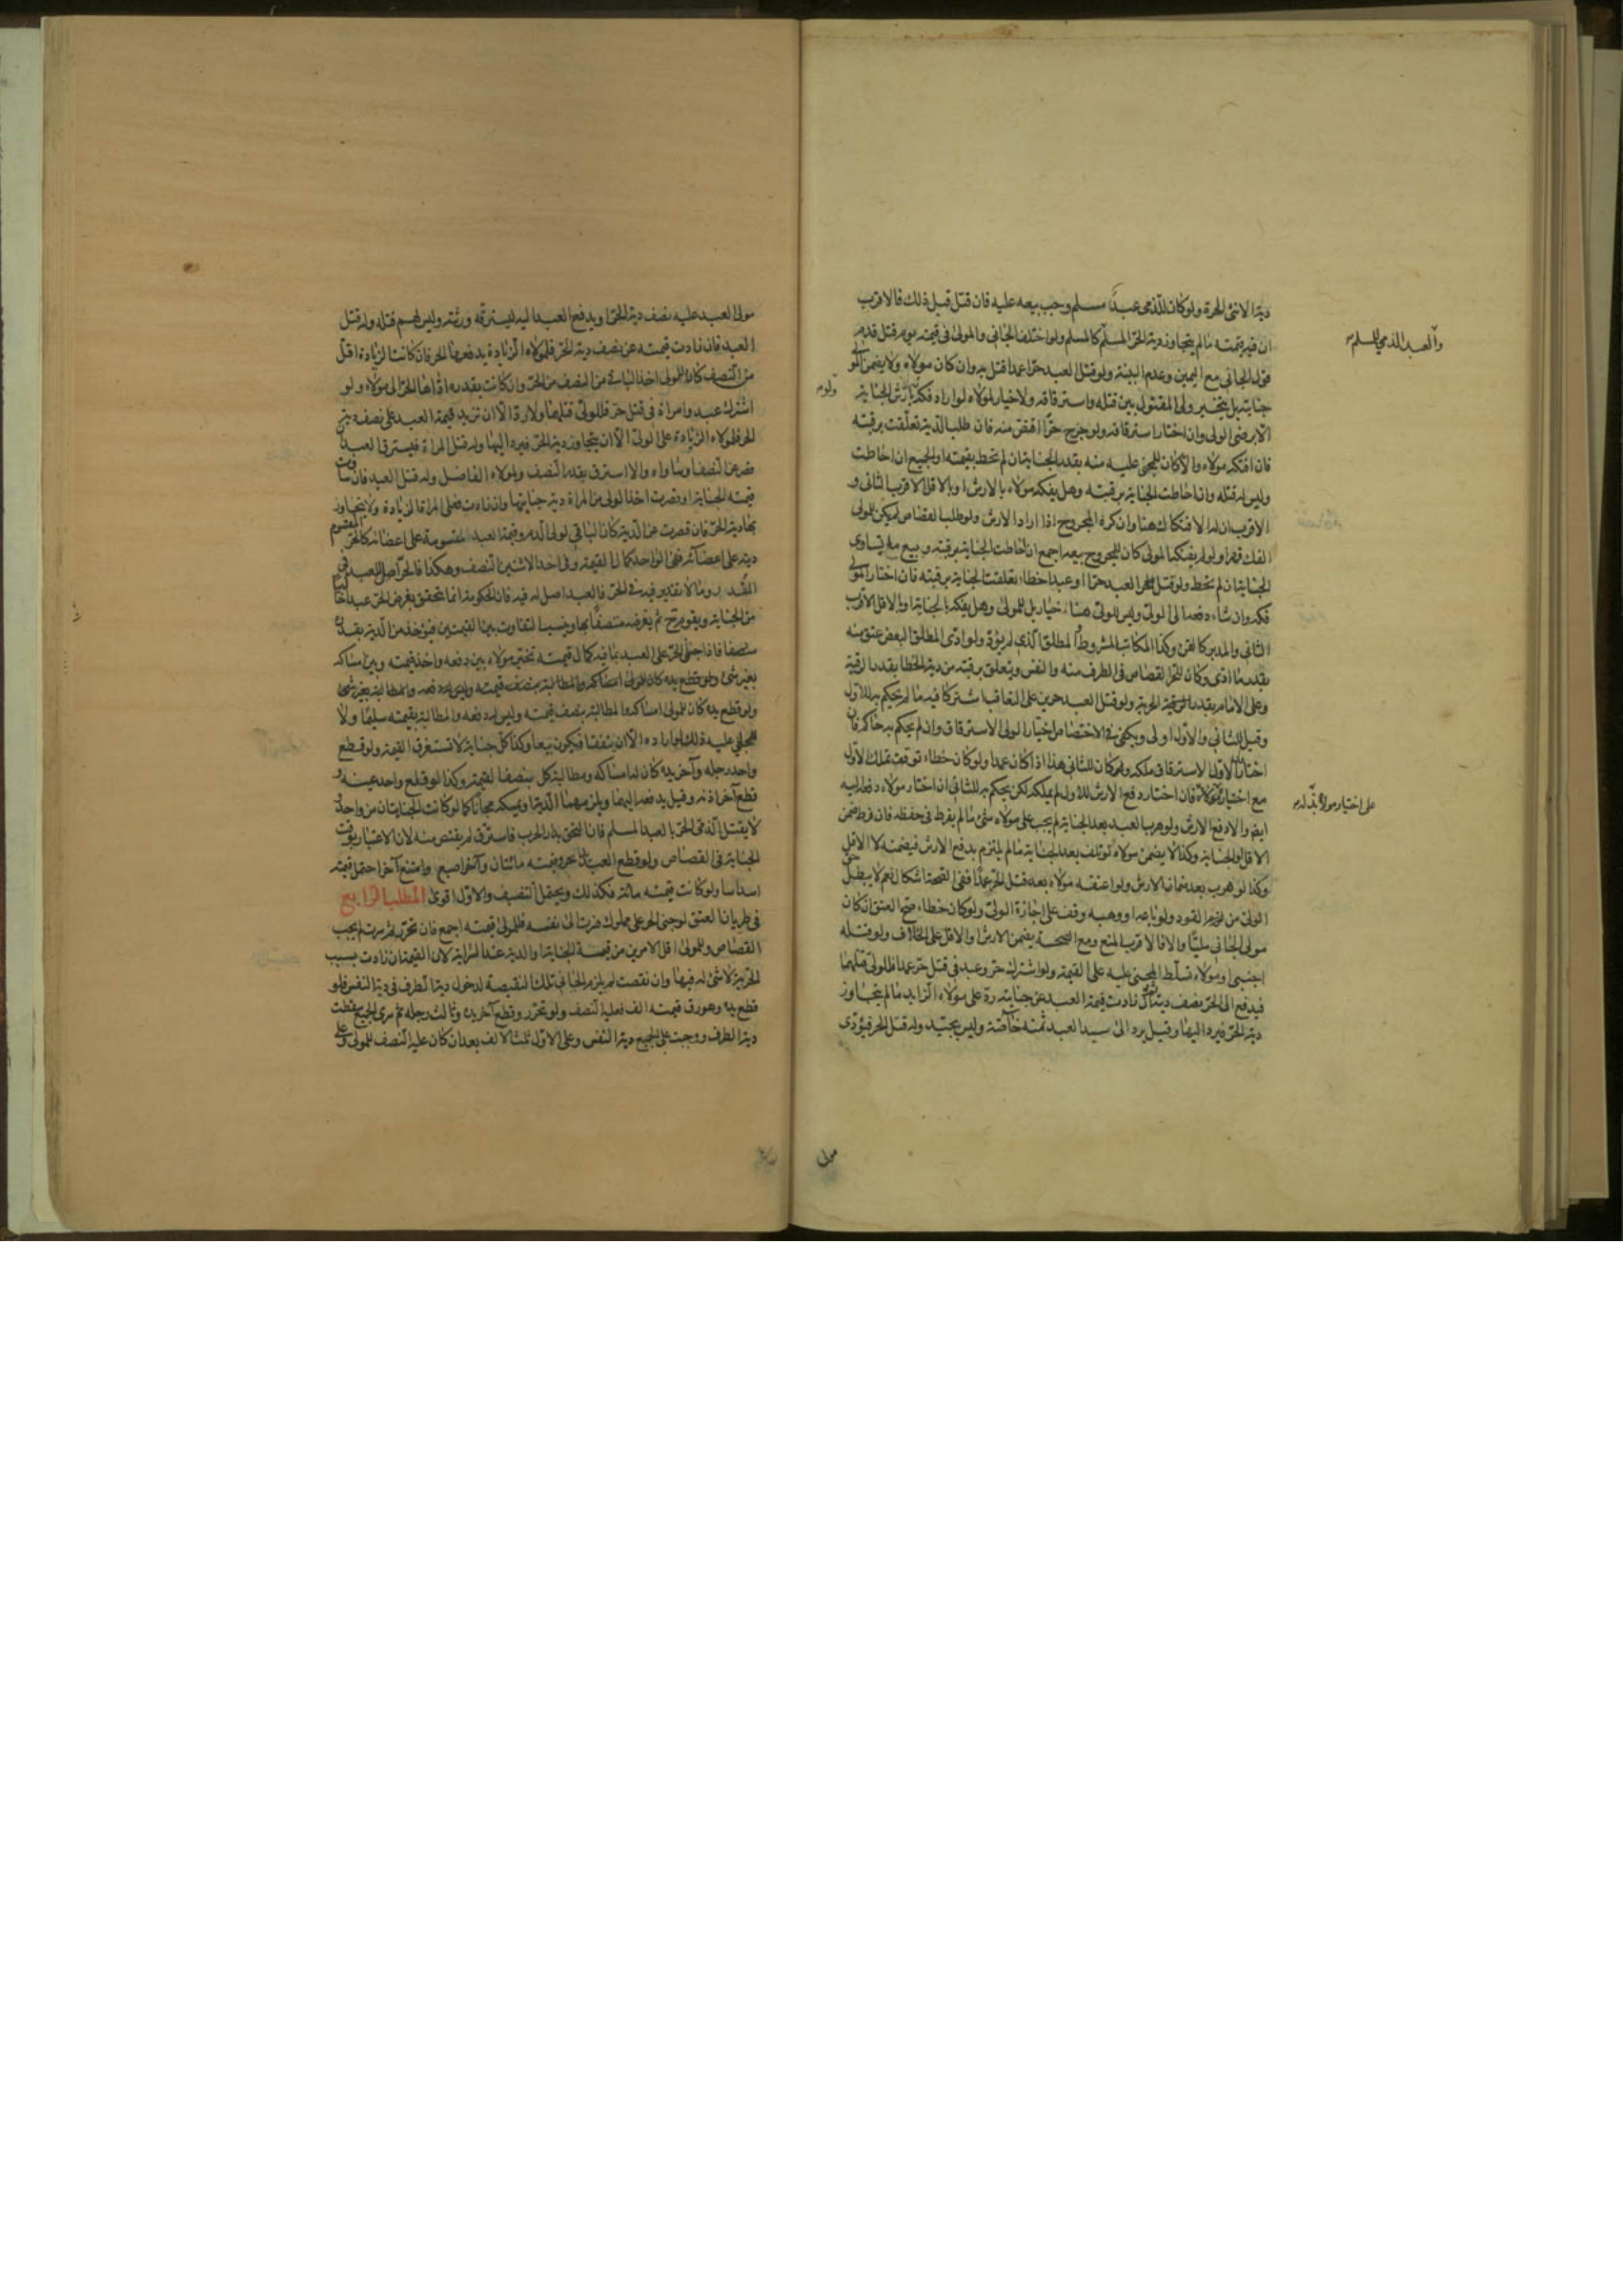 دية الانثى الحرة ولو كان للذمي عبدا مسلم وجب بيعه عليه فان قتل قبل ذلك فالاقرب
ان فيه قيمته ما لم يتجاوز دية الحر المسلم كالمسلم ولو اختلف الجاني والمولى في قيمته يوم قتل قدم
والعبد الذمي للمسلم
قول الجاني مع اليمين وعدم البينة ولو قتل العبد حرا عمدا قتل به وان كان مولاه ولا يضمن المولى
جنايته بل يتخير ولي المقتول بين قتله واسترقاقه ولا خيار لمولاه لو اراد فكه بارش الجناية
الا برضى الولي وان اختار استرقاقه ولو جرح حرا اقتص منه فان طلب الدية تعلقت برقبته
فان افتكه مولاه والا كان للمجني عليه منه بقدر الجناية ان لم تحط بقيمته او الجميع ان احاطت
وليس له قتله وان احاطت الجناية برقبته وهل يفكه مولاه بالارش او بالاقل الاقرب الثاني و
الاقرب ان له الافتكاك هنا وان كره المجروح اذا اراد الارش ولو طلب القصاص لم يكن للمولى
الفك قهرا ولو لم يفتكه المولى كان للمجروح بيعه اجمع ان احاطت الجناية برقبته وبيع ما يساوي
الجناية ان لم تحط ولو قتل العبد حرا او عبدا خطاء تعلقت الجناية برقبته فان اختار المولى
فكه وان شاء دفعه الى الولي وليس للولي هنا خيار بل للمولى وهل يفكه بالجناية او بالاقل الاقرب
الثاني والمدبر كالقن وكذا المكاتب المشروط او المطلق الذي لم يؤد ولو ادى المطلق البعض عتق منه
بقدر ما ادى وكان للحر القصاص في الطرف منه والنفس ويتعلق برقبته من دية الخطا بقدر الرقية
وعلى الامام بقدر الحرية ولو قتل العبد حرين على التعاقب اشتركا فيه ما لم يحكم به للاول
وقيل للثاني والاول اولى ويكفي في الاختصاص اختيار الولي الاسترقاق وان لم يحكم به حاكم فان
اختار الاول الاسترقاق ملكه وكان للثاني هذا اذا كان عمدا ولو كان خطاء توقف تملك الاول
على اختيار مولاه بذله
مع اختيار مولاه فان اختار دفع الارش للاول لم يملكه لكن يحكم به للثاني ان اختار مولاه دفعه اليه
ايضا والا دفع الارش ولو هرب العبد بعد الجناية لم يجب على مولاه شئ ما لم يفرط في حفظه فان فرط ضمن
وكذا لا يضمن مولاه لو تلف بعد الجناية ما لم يلتزم بدفع الارش فيضمنه لا الاقل
وكذا لو هرب بعد ضمان الارش ولو اعتقه مولاه بعد قتل الحر عمدا ففي الصحة اشكال نعم لا يبطل حق
الولي من القود ولو باعه او وهبه وقف على اجازة الولي ولو كان خطاء صح العتق ان كان
مولى الجاني مليا والا فالاقرب المنع ومع الصحة يضمن الارش او الاقل على الخلاف ولو قتله
اجنبي او مولاه تسلط المجني عليه على القيمة ولو اشترك حر وعبد في قتل حر عمدا فللولي قتلهما
فيدفع الى الحر نصف ديته فان زادت قيمة العبد عن جنايته رد على مولاه الزايد ما لم يتجاوز
دية الحر فيرد اليها وقيل يرد الى سيد العبد ثمنه خاصة وليس بجيد وله قتل الحر فيؤدي
مولى
مولى العبد عليه نصف دية الحر او يدفع العبد اليه ليسترقه ورثته وليس لهم قتله وله قتل
العبد فان زادت قيمته عن نصف دية الحر فلمولاه الزيادة يدفعها الحر فان كانت الزيادة اقل
من النصف كان للولي اخذ الباقي من النصف من الحر وان كانت بقدره اداها الحر الى مولاه ولو
اشترك عبد وامراة في قتل حر فللولي قتلهما ولا رد الا ان تزيد قيمة العبد على نصف دية
الحر فلمولاه الزيادة على الولي الا ان يتجاوز دية الحر فيرد اليها وله قتل المراة فيسترق العبد ان
قصر عن النصف او ساواه والا استرق بقدر النصف ولمولاه الفاضل وله قتل العبد فان ساوت
قيمته الجناية او قصرت اخذ الولي من المراة دية جنايتها وان زادت فعلى المراة الزيادة ولا يتجاوز
بها دية الحر فان قصرت عن الدية كان الباقي لولي الدم وقيمة العبد مقسومة على اعضائه كالحر المقسوم
ديته على اعضائه ففي الواحد كمال القيمة وفي احد الاثنين النصف وهكذا فالحر اصل للعبد في
المقدر وما لا تقدير فيه في الحر فالعبد اصل له فيه فان الحكومة انما تتحقق بفرض الحر عبدا خاليا
من الجناية ويقوم ح ثم يفرضه متصفا بها وينسب التفاوت بين القيمتين فيؤخذ من الدية بقدره
منصفا فاذا جنى الحر على العبد بما فيه كمال قيمته تخير مولاه بين دفعه واخذ قيمته وبين امساكه
بغير شئ ولو قطع يده كان للمولى امساكه والمطالبة بنصف قيمته وليس له دفعه والمطالبة بغير شئ
ولو قطع يده كان للمولى امساكه والمطالبة بنصف قيمته وليس له دفعه والمطالبة بقيمته سليما ولا
للجاني عليه ذلك لو اراده الا ان يتفقا فيكون بيعا وكذا كل جناية لا تستغرق القيمة ولو قطع
واحد رجله وآخر يده كان له امساكه ومطالبة كل بنصف القيمة وكذا لو قلع واحد عينه و
قطع آخر اذنه وقيل يدفعه اليهما ويلزمهما الدية او يمسكه مجانا كما لو كانت الجنايتان من واحد و
لا يقتل الذمي الحر بالعبد المسلم فان التحق بدار الحرب فاسترق لم يقتص منه لان الاعتبار بوقت
الجناية في القصاص ولو قطع العبد يد حر وقيمته مائتان وآخر اصبع وامتنع آخر احتمل قيمته
اسداسا ولو كانت قيمته مائة فكذلك ويحتمل التنصيف والاول اقوى المطلب الرابع
في طريان العتق لو جنى الحر على مملوك فسرت الى نفسه فللمولى قيمته اجمع فان تحرر ثم سرت لم يجب
القصاص وللمولى اقل الامرين من قيمة الجناية او الدية عند السراية لان القيمة ان زادت بسبب
الحرية لا شئ له فيها وان نقصت لم يلزم الجاني تلك النقيصة لدخول دية الطرف في دية النفس فلو
قطع يده وهو رق قيمته الف فعليه النصف ولو تحرر وقطع آخر يده وثالث رجله ثم سرى الجميع سقطت
دية الطرف ووجبت على الجميع دية النفس وعلى الاول ثلث الالف بعد ان كان عليه النصف للمولى وعلى